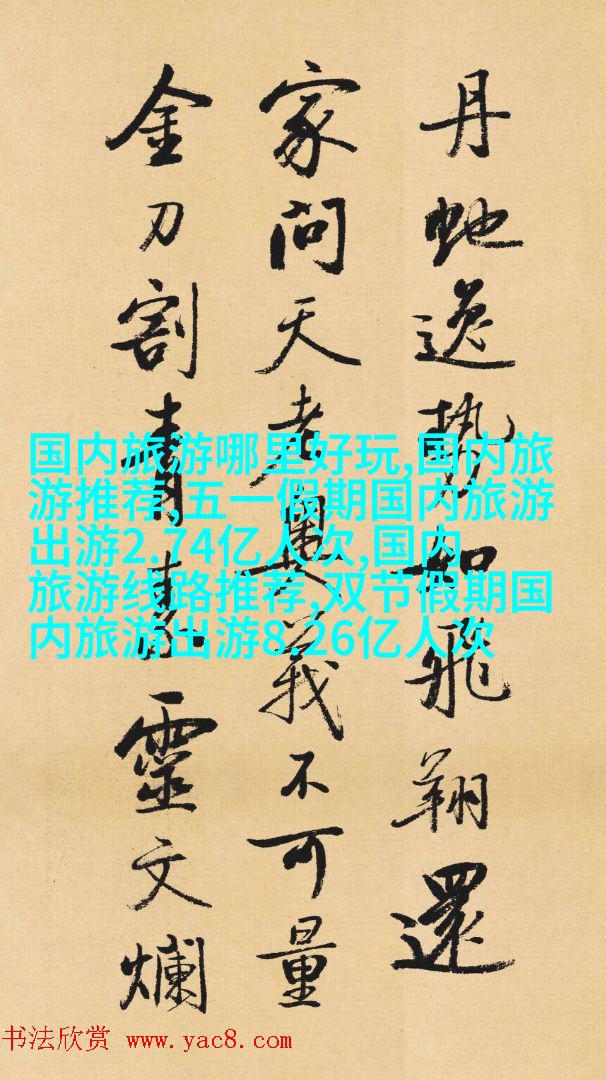 丹虵逸勢如飛翔還
家問天老奧義不可量
金刀割青素靈文爛
国内旅游哪里好玩,国内旅
游推荐,五一假期国内旅游
出游2.74亿人次,国内
旅游线路推荐,双节假期国
内旅游出游8.26亿人次
书法欣赏 www.yac8.com